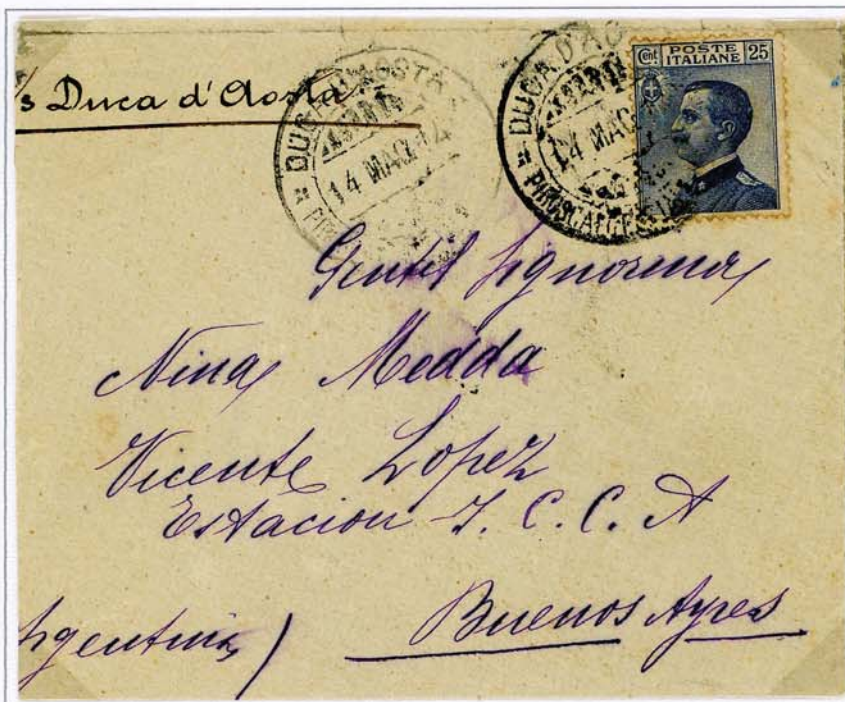 /s Duca d'Aosta
DUCA D'AOSTA
14 MAG 14
DUCA D'AO
14 MAG
PIROSCAFO
Cent POSTE ITALIANE 25
Gentil Signorina
Nina Medda
Vicente Lopez
Estacion F. C. C. A
Buenos Ayres
rgentina)